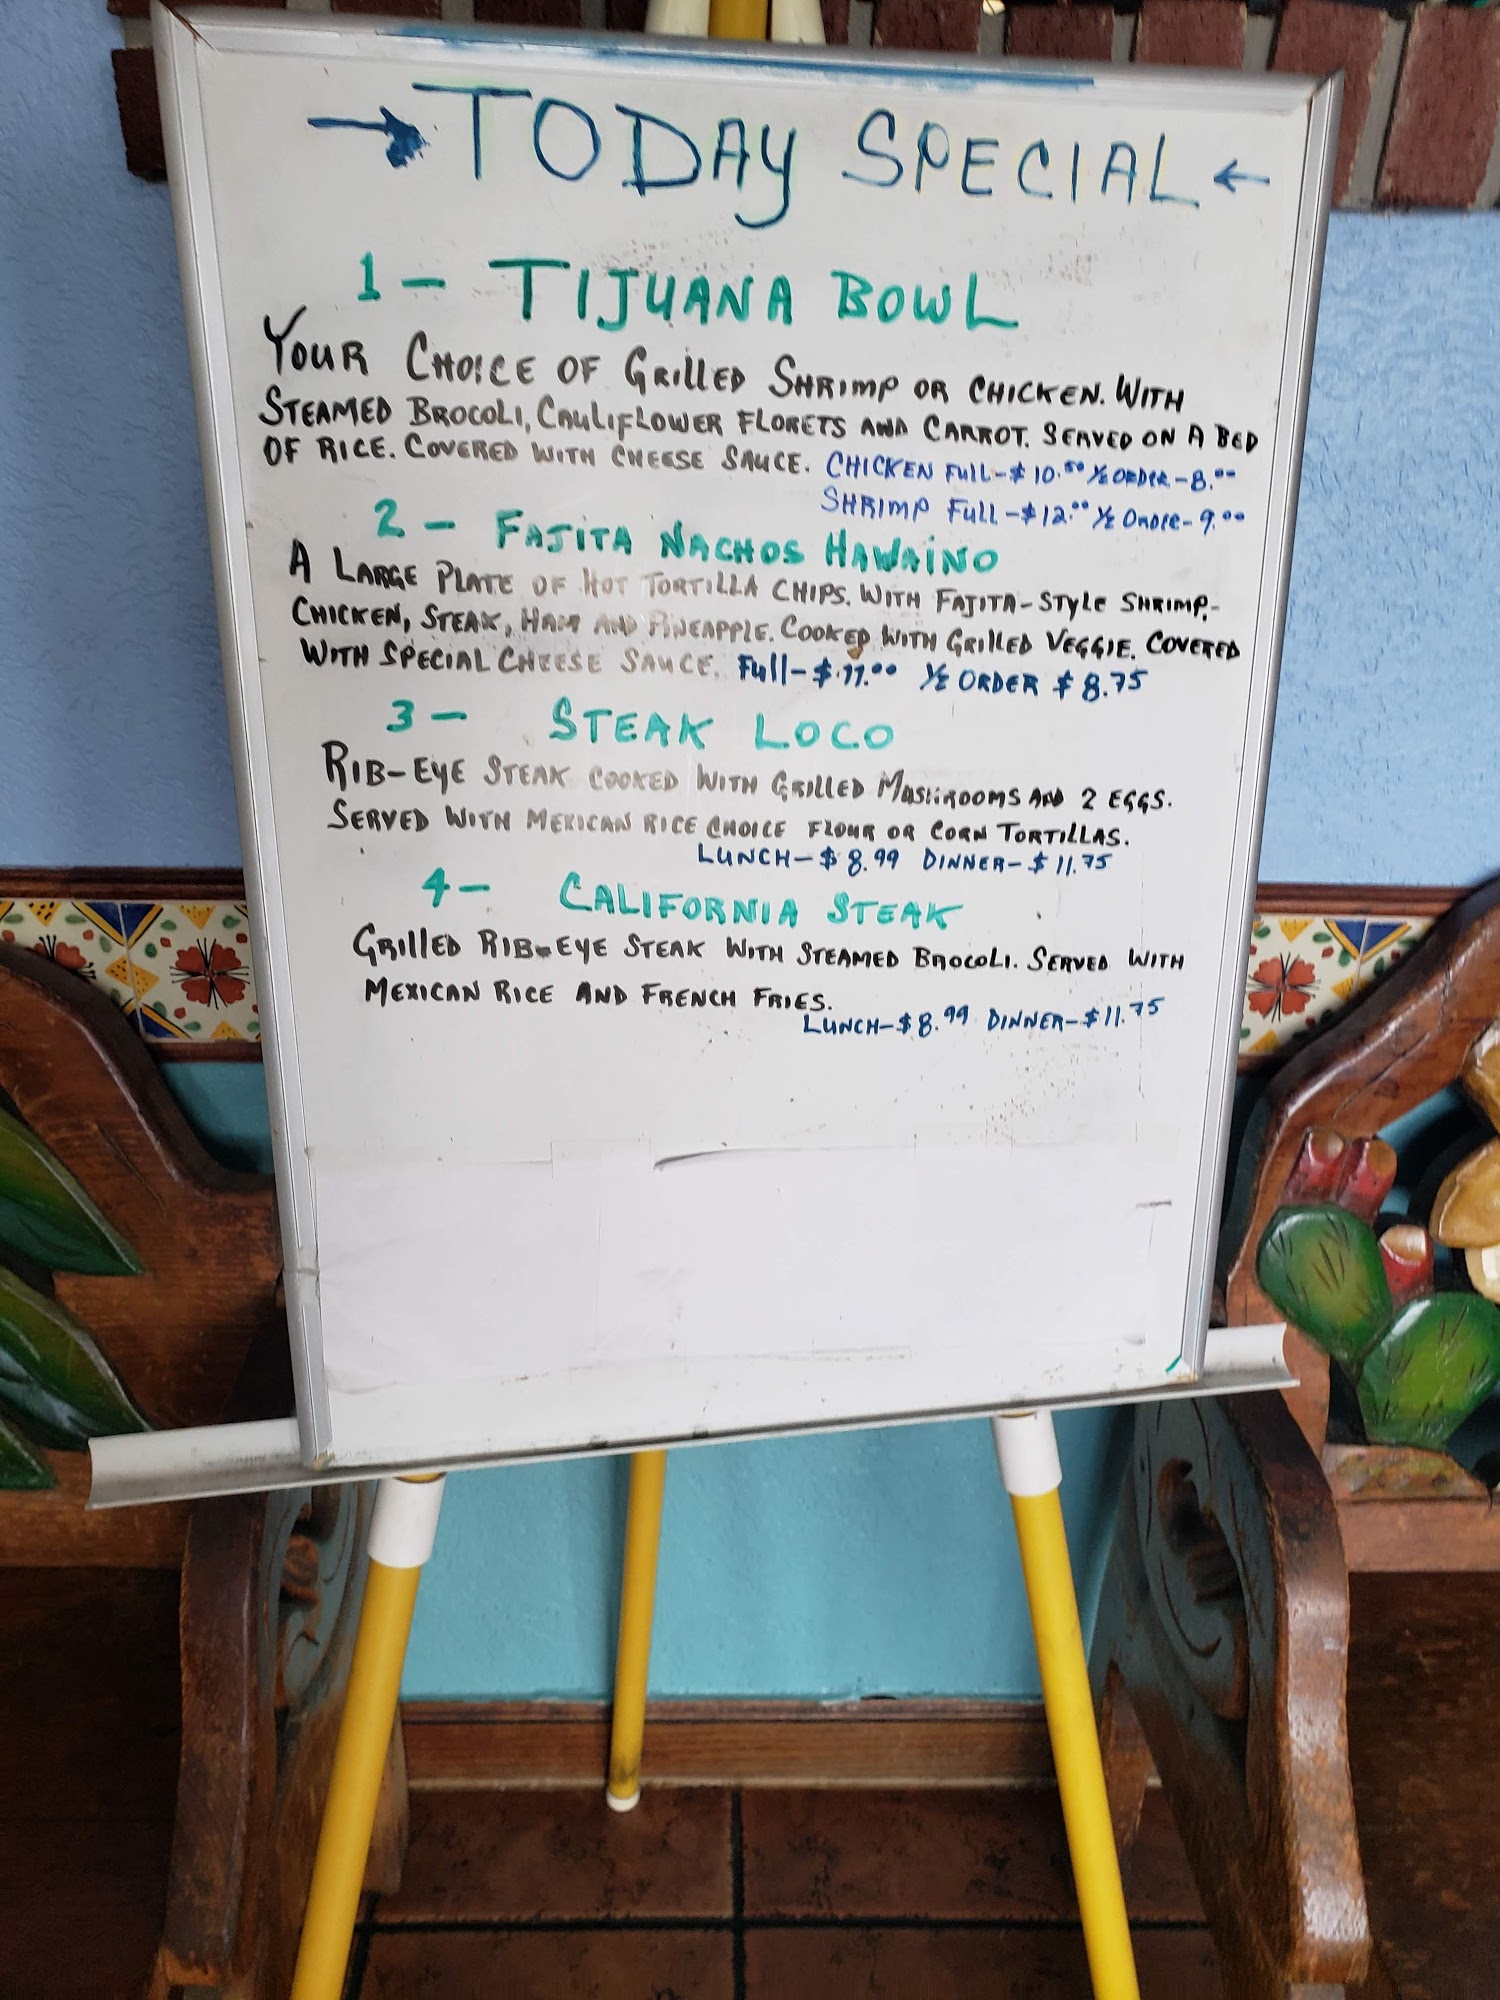 → TODAY SPECIAL ←
1 - TIJUANA BOWL
YOUR CHOICE OF GRILLED SHRIMP OR CHICKEN. WITH
STEAMED BROCOLI, CAULIFLOWER FLORETS AND CARROT. SERVED ON A BED
OF RICE. COVERED WITH CHEESE SAUCE. CHICKEN FULL-$10.50 ½ ORDER-8.00
SHRIMP FULL-$12.00 ½ ORDER-9.00
2 - FAJITA NACHOS HAWAINO
A LARGE PLATE OF HOT TORTILLA CHIPS. WITH FAJITA-STYLE SHRIMP,-
CHICKEN, STEAK, HAM AND PINEAPPLE. COOKED WITH GRILLED VEGGIE. COVERED
WITH SPECIAL CHEESE SAUCE. FULL-$11.00 ½ ORDER $8.75
3 - STEAK LOCO
RIB-EYE STEAK COOKED WITH GRILLED MUSHROOMS AND 2 EGGS.
SERVED WITH MEXICAN RICE CHOICE FLOUR OR CORN TORTILLAS.
LUNCH-$8.99 DINNER-$11.75
4- CALIFORNIA STEAK
GRILLED RIB-EYE STEAK WITH STEAMED BROCOLI. SERVED WITH
MEXICAN RICE AND FRENCH FRIES.
LUNCH-$8.99 DINNER-$11.75